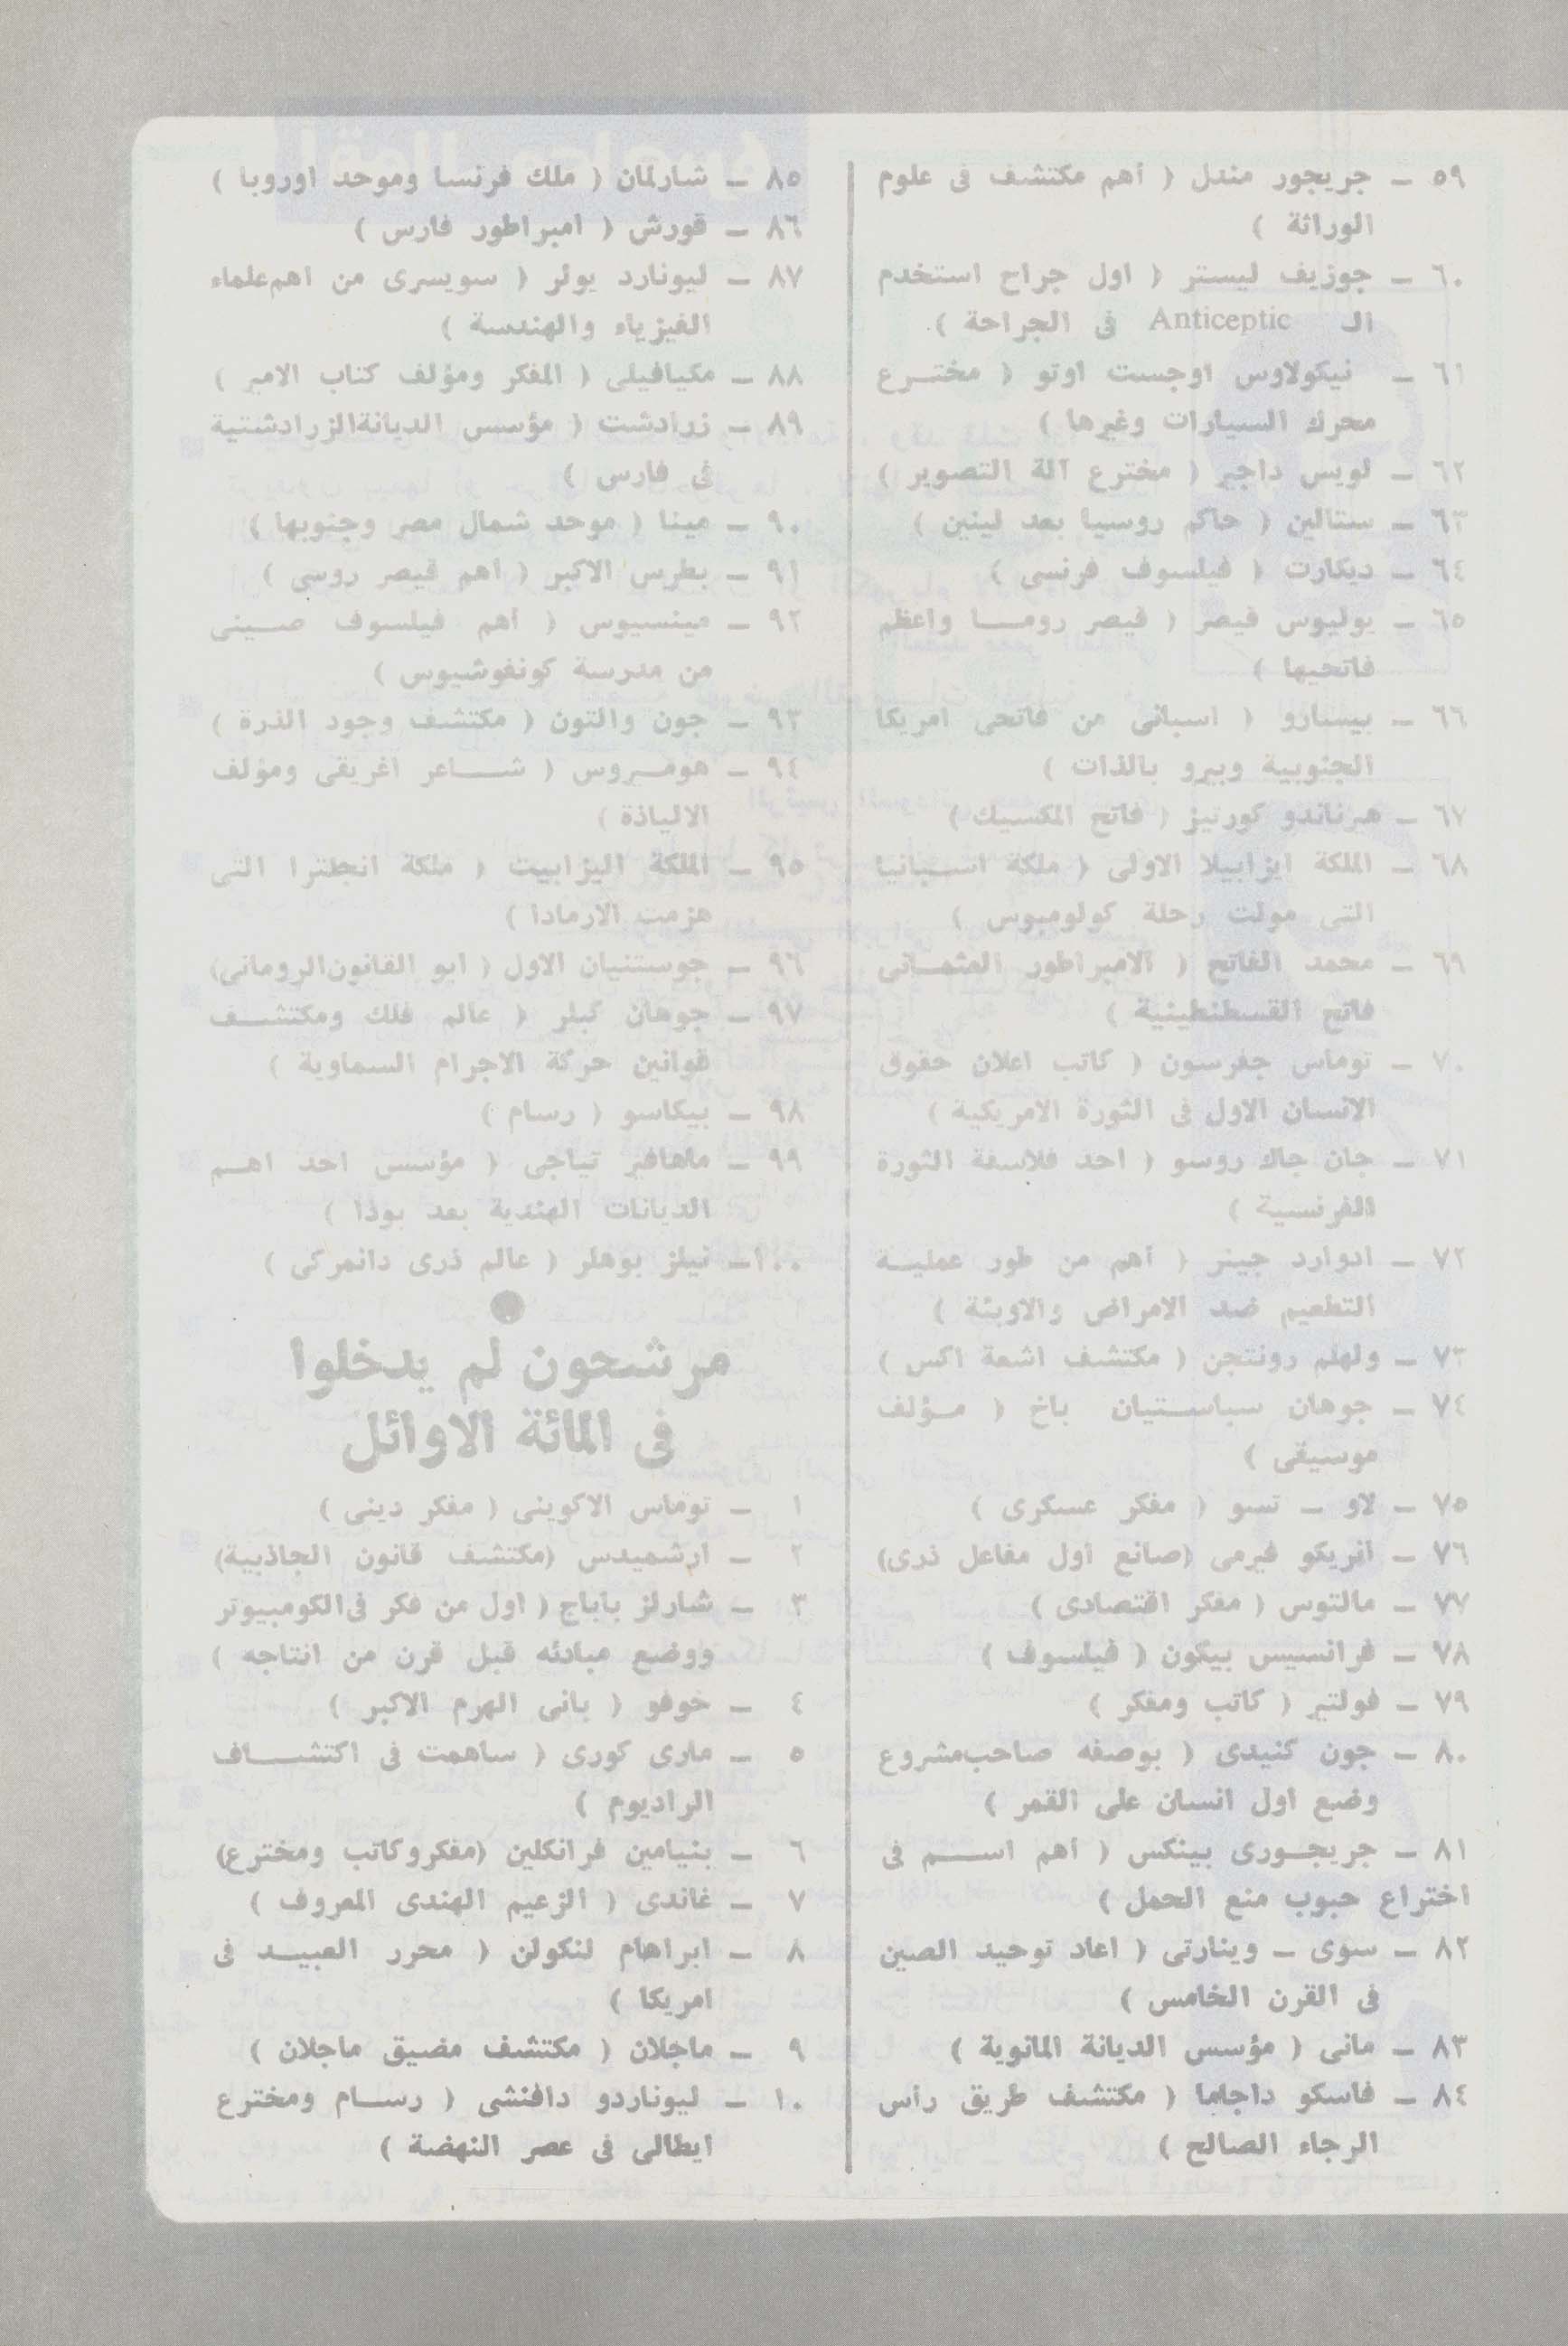 ٥٩ – جريجور مندل ( أهم مكتشف فى علوم
الوراثة )
٦٠ – جوزيف ليستر ( اول جراح استخدم
الـ Anticeptic فى الجراحة )
٦١ – نيكولاوس اوجست اوتو ( مختــرع
محرك السيارات وغيرها )
٦٢ – لويس داجير ( مخترع آلة التصوير )
٦٣ – ستالين ( حاكم روسيا بعد لينين )
٦٤ – ديكارت ( فيلسوف فرنسى )
٦٥ – يوليوس قيصر ( قيصر رومــا واعظم
فاتحيها )
٦٦ – بيسارو ( اسبانى من فاتحى امريكا
الجنوبية وبيرو بالذات )
٦٧ – هرناندو كورتيز ( فاتح المكسيك )
٦٨ – الملكة ايزابيلا الاولى ( ملكة اســبانيا
التى مولت رحلة كولومبوس )
٦٩ – محمد الفاتح ( الامبراطور العثمــانى
فاتح القسطنطينية )
٧٠ – توماس جفرسون ( كاتب اعلان حقوق
الانسان الاول فى الثورة الامريكية )
٧١ – جان جاك روسو ( احد فلاسفة الثورة
الفرنسية )
٧٢ – ادوارد جينر ( أهم من طور عمليــة
التطعيم ضد الامراض والاوبئة )
٧٣ – ولهلم رونتجن ( مكتشف اشعة اكس )
٧٤ – جوهان سباســتيان باخ ( مــؤلف
موسيقى )
٧٥ – لاو – تسو ( مفكر عسكرى )
٧٦ – انريكو فيرمى (صانع اول مفاعل ذرى)
٧٧ – مالتوس ( مفكر اقتصادى )
٧٨ – فرانسيس بيكون ( فيلسوف )
٧٩ – فولتير ( كاتب ومفكر )
٨٠ – جون كنيدى ( بوصفه صاحب مشروع
وضع اول انسان على القمر )
٨١ – جريجــورى بينكس ( أهم اســـم فى
اختراع حبوب منع الحمل )
٨٢ – سوى – وينارتى ( اعاد توحيد الصين
فى القرن الخامس )
٨٣ – مانى ( مؤسس الديانة المانوية )
٨٤ – فاسكو داجاما ( مكتشف طريق رأس
الرجاء الصالح )
٨٥ – شارلمان ( ملك فرنسا وموحد اوروبا )
٨٦ – قورش ( امبراطور فارس )
٨٧ – ليونارد يولر ( سويسرى من اهم علماء
الفيزياء والهندسة )
٨٨ – مكيافيلى ( المفكر ومؤلف كتاب الامير )
٨٩ – زرادشت ( مؤسس الديانة الزرادشتية
فى فارس )
٩٠ – مينا ( موحد شمال مصر وجنوبها )
٩١ – بطرس الاكبر ( اهم قيصر روسى )
٩٢ – مينسيوس ( أهم فيلسوف صــينى
من مدرسة كونفوشيوس )
٩٣ – جون والتون ( مكتشف وجود الذرة )
٩٤ – هومــيروس ( شـــاعر اغريقى ومؤلف
الالياذة )
٩٥ – الملكة اليزابيث ( ملكة انجلترا التى
هزمت الارمادا )
٩٦ – جوستنيان الاول ( ابو القانون الرومانى)
٩٧ – جوهان كبلر ( عالم فلك ومكتشــف
قوانين حركة الاجرام السماوية )
٩٨ – بيكاسو ( رسام )
٩٩ – ماهافير تياجى ( مؤسس احد اهــم
الديانات الهندية بعد بوذا )
١٠٠– نيلز بوهلر ( عالم ذرى دانمركى )
مرشحون لم يدخلوا
فى المائة الاوائل
١ – توماس الاكوينى ( مفكر دينى )
٢ – ارشميدس (مكتشف قانون الجاذبية)
٣ – شارلز باباج ( اول من فكر فى الكومبيوتر
ووضع مبادئه قبل قرن من انتاجه )
٤ – خوفو ( بانى الهرم الاكبر )
٥ – مارى كورى ( ساهمت فى اكتشـــاف
الراديوم )
٦ – بنيامين فرانكلين (مفكر وكاتب ومخترع)
٧ – غاندى ( الزعيم الهندى المعروف )
٨ – ابراهام لنكولن ( محرر العبيــد فى
امريكا )
٩ – ماجلان ( مكتشف مضيق ماجلان )
١٠ – ليوناردو دافنشى ( رســام ومخترع
ايطالى فى عصر النهضة )